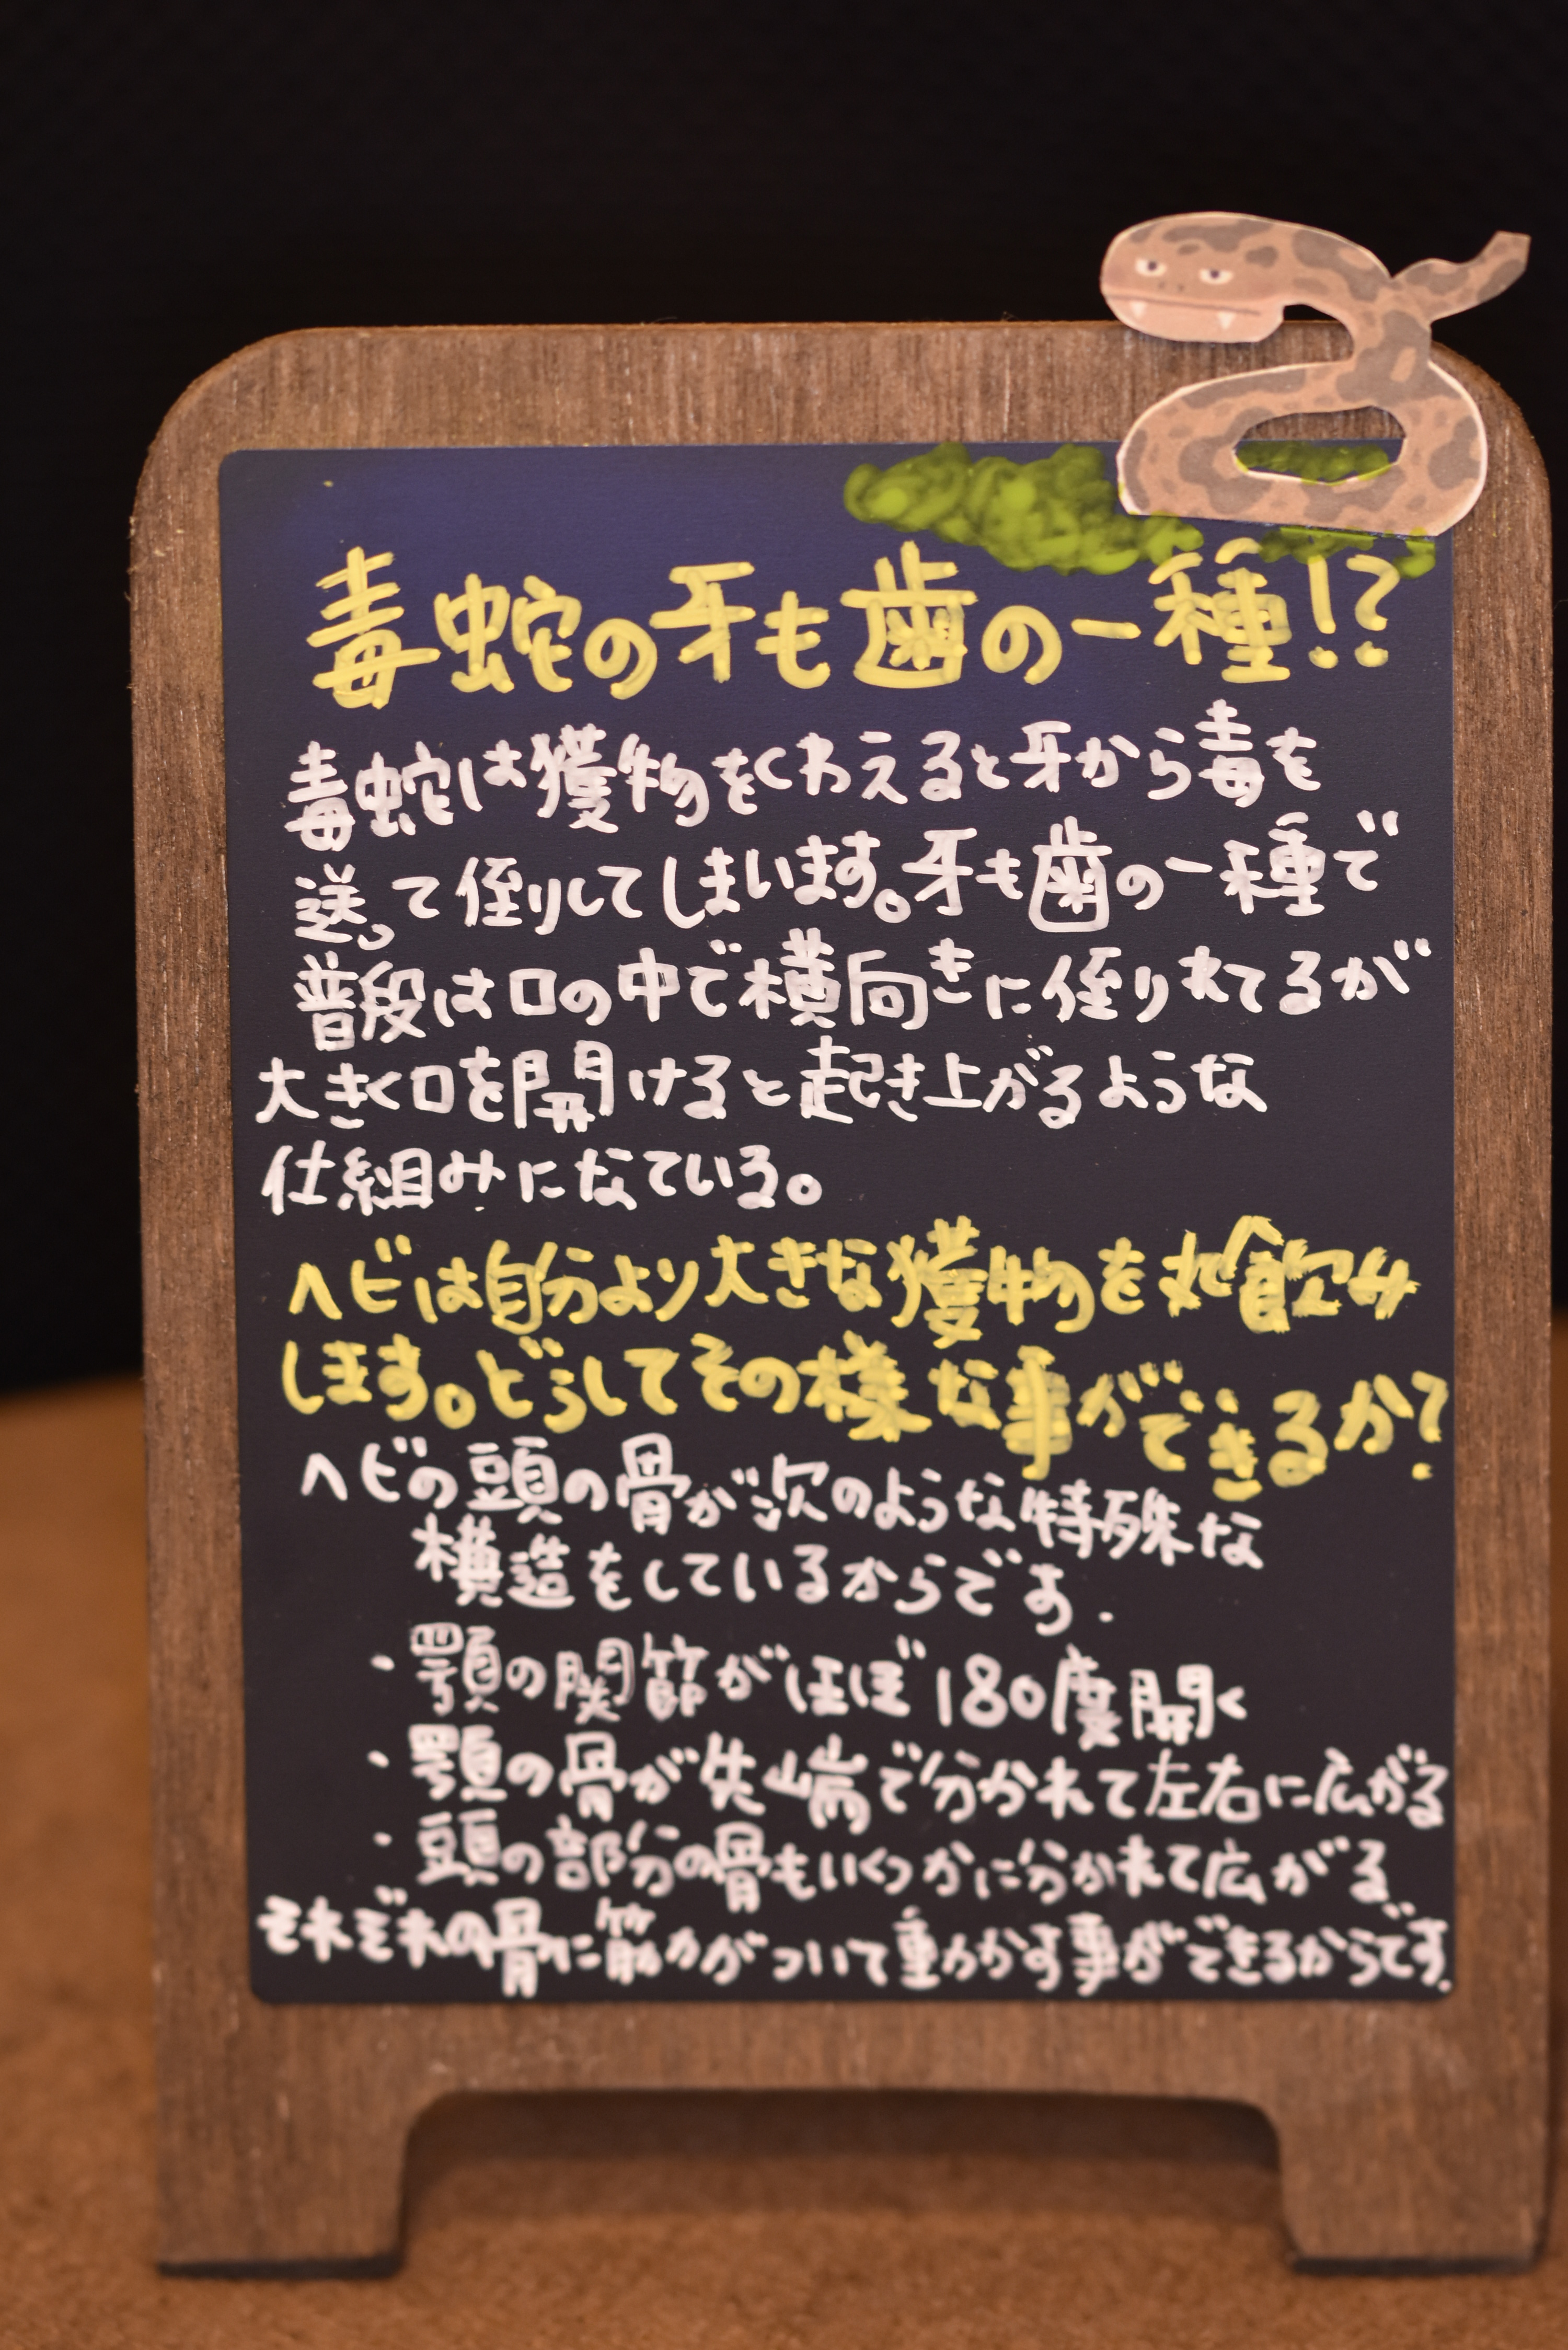 毒蛇の牙も歯の一種!?
毒蛇は獲物をくわえると牙から毒を
送って倒してしまいます。牙も歯の一種で
普段は口の中で横向きに倒れてるが
大きく口を開けると起き上がるような
仕組みになている。
ヘビは自分より大きな獲物を丸飲み
します。どうしてその様な事ができるか?
ヘビの頭の骨が次のような特殊な
構造をしているからです.
・顎の関節がほぼ180度開く
・顎の骨が先端で分かれて左右に広がる
・頭の部分の骨もいくつかに分かれて広がる
それぞれの骨に筋力がついて動かす事ができるからです.